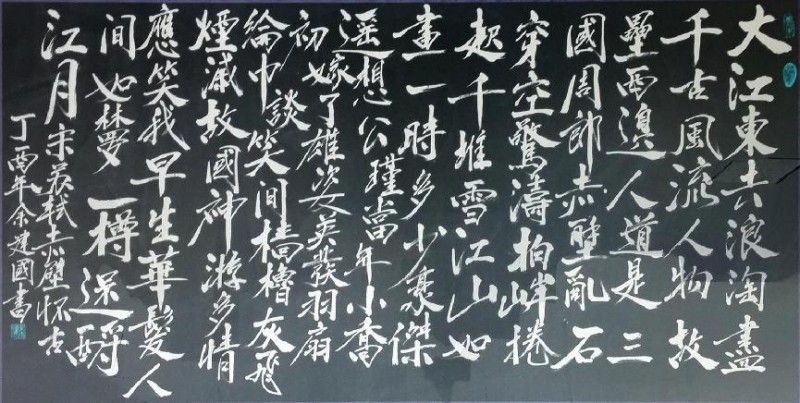 大江東去浪淘盡
千古風流人物故
壘西邊人道是三
國周郎赤壁亂石
穿空驚濤拍岸捲
起千堆雪江山如
畫一時多少豪傑
遥想公瑾當年小喬
初嫁了雄姿英發羽扇
綸巾談笑間檣櫓灰飛
煙滅故國神游多情
應笑我早生華髮人
間如夢一樽還酹
江月 宋蘇軾赤壁懷古
丁酉年余建國書